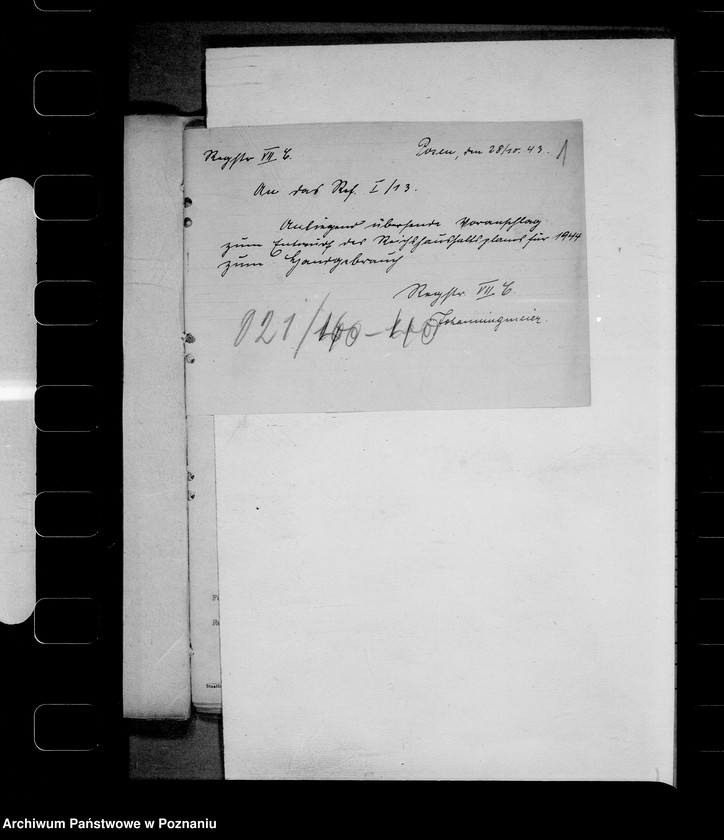 Registr VII C.
Posen, den 28/10. 43.
1
An das Ref. I/13.
Anliegend übersende Voranschlag
zum Entwurf des Reichshaushaltsplans für 1944
zum Handgebrauch
Registr. VII. C.
Johanningmeier.
021/
Archiwum Państwowe w Poznaniu